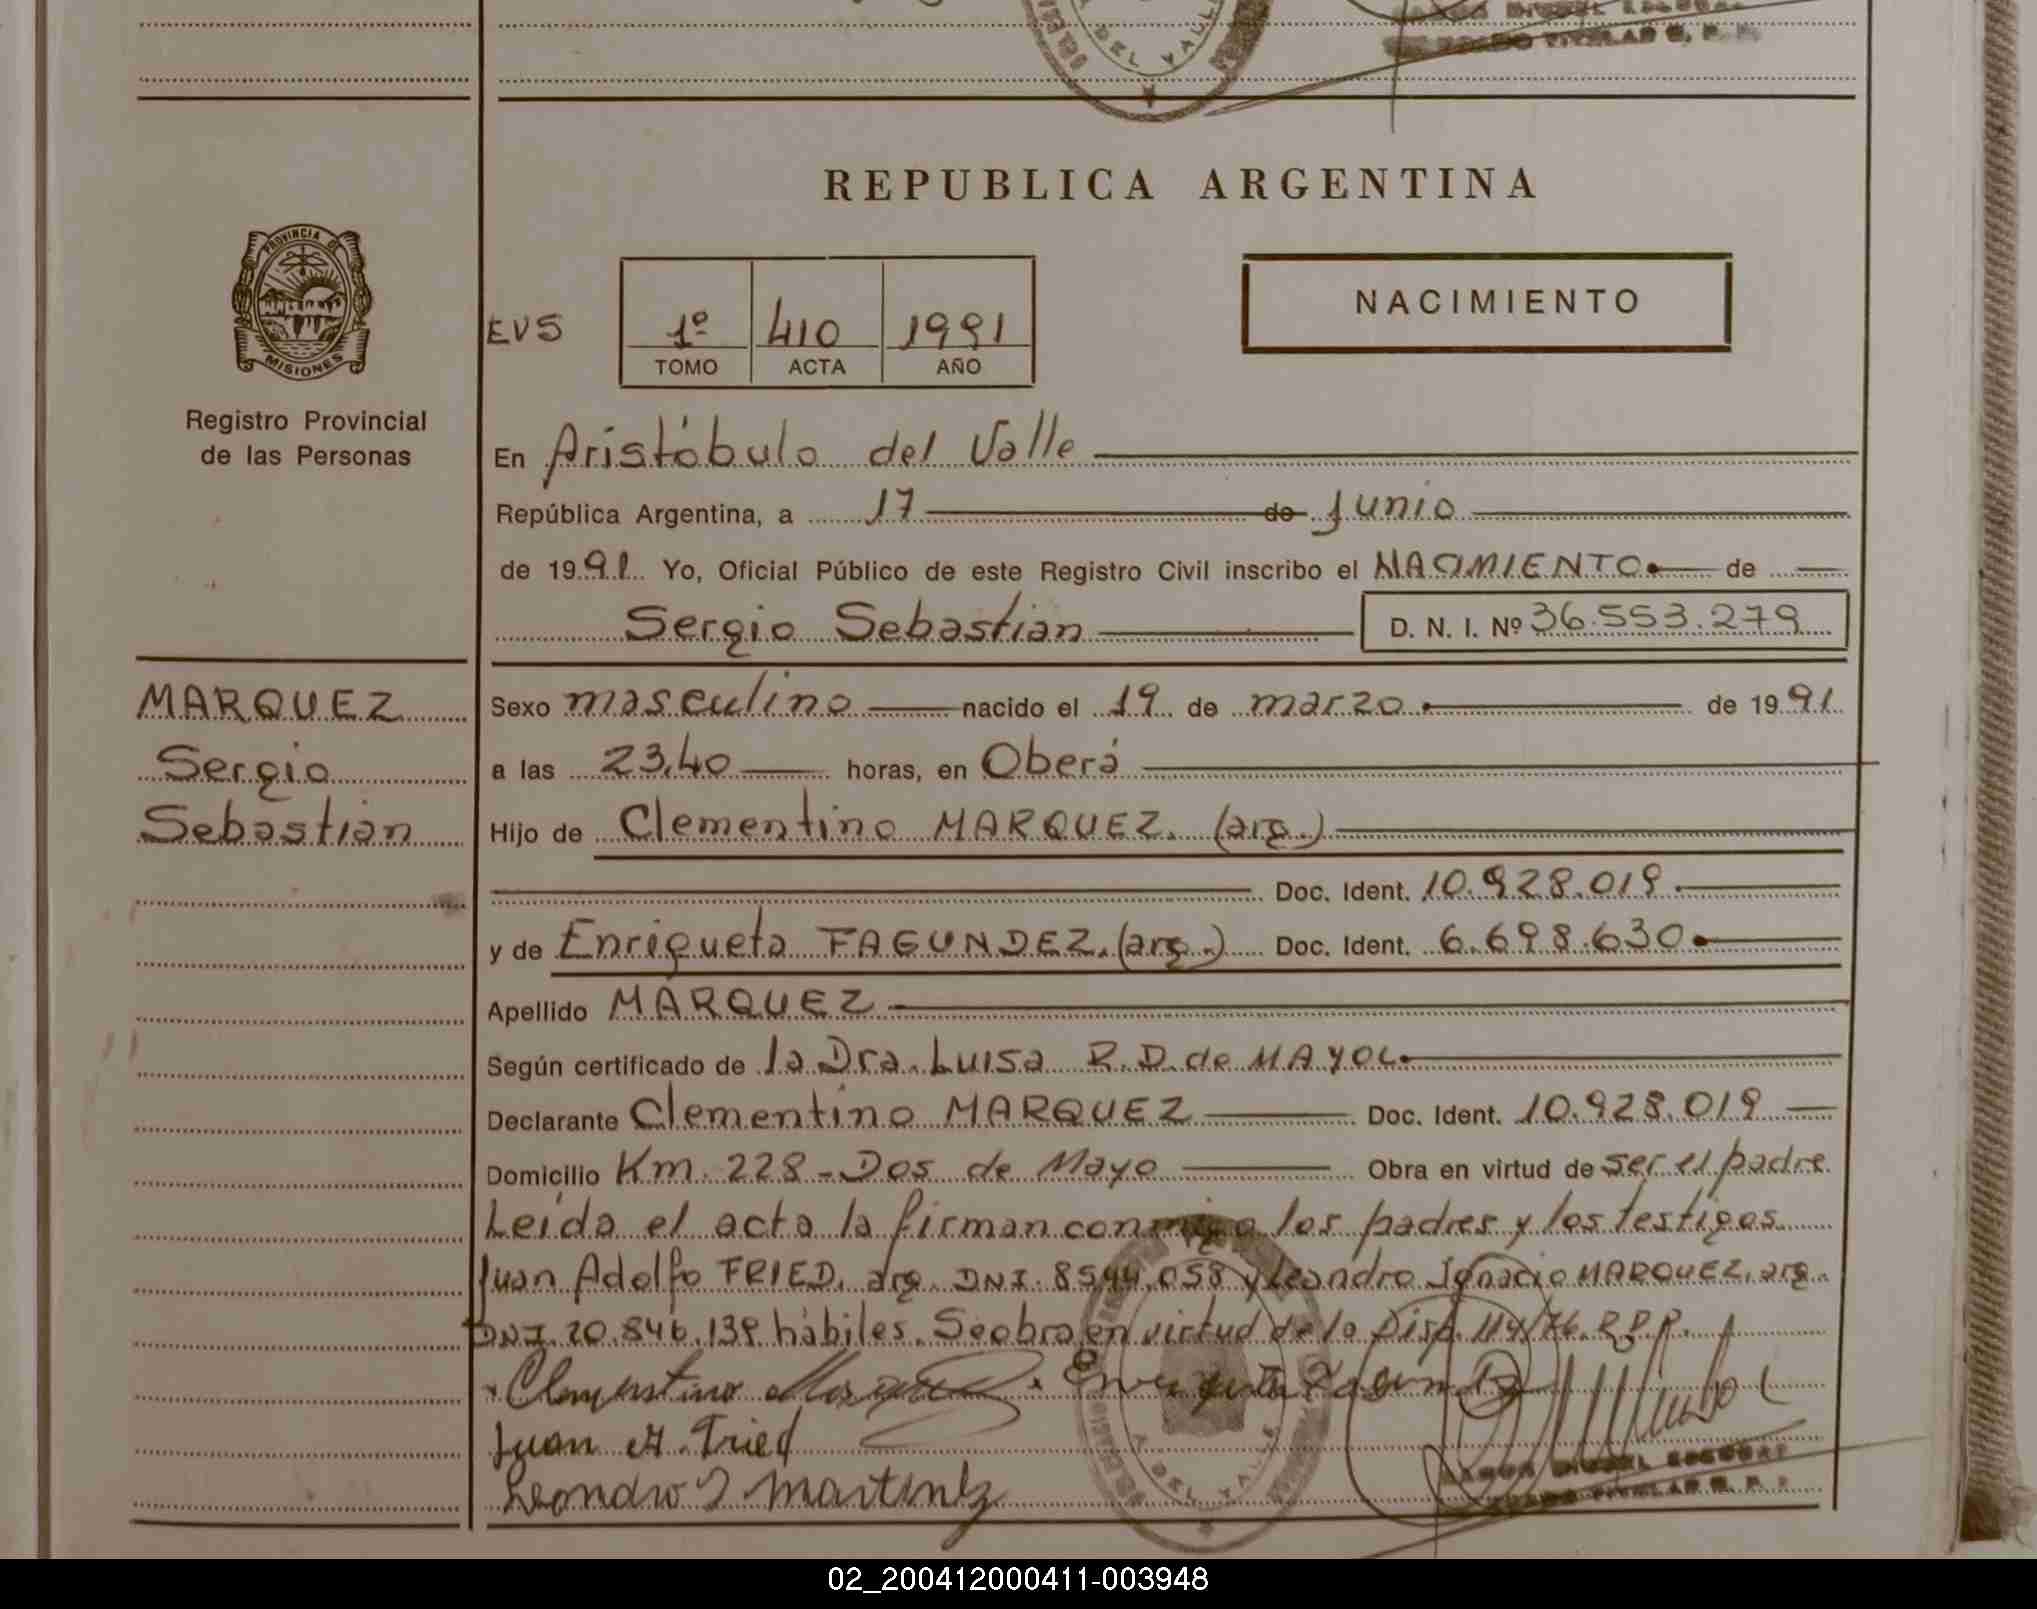 DEL VALLE
TITULAR R. P. P.
REPUBLICA ARGENTINA
PROVINCIA DE
MISIONES
Registro Provincial
de las Personas
NACIMIENTO
EVS
1º 410 1991
TOMO ACTA AÑO
En Aristóbulo del Valle
República Argentina, a 17 de Junio
de 1991 Yo, Oficial Público de este Registro Civil inscribo el NACIMIENTO de
Sergio Sebastian D. N. I. Nº 36.553.279
MARQUEZ
Sergio
Sebastian
Sexo masculino nacido el 19 de marzo de 1991
a las 23,40 horas, en Oberá
Hijo de Clementino MARQUEZ. (arg.)
Doc. Ident. 10.928.019
y de Enriqueta FAGUNDEZ. (arg.) Doc. Ident. 6.698.630
Apellido MARQUEZ
Según certificado de la Dra. Luisa R. D. de MAYOL
Declarante Clementino MARQUEZ Doc. Ident. 10.928.019
Domicilio Km. 228 - Dos de Mayo Obra en virtud de ser el padre
Leída el acta la firman conmigo los padres y los testigos
Juan Adolfo FRIED, arg. DNI. 8544.058 y Leandro Ignacio MARQUEZ, arg.
DNI. 20.846.139 hábiles. Se obra en virtud de la Disp. 114/76. R.P.P.
Clementino Marquez Enriqueta Fagundez
Juan A. Fried
Leondro I Martinez
DEL VALLE
TITULAR R. P. P.
02_200412000411-003948